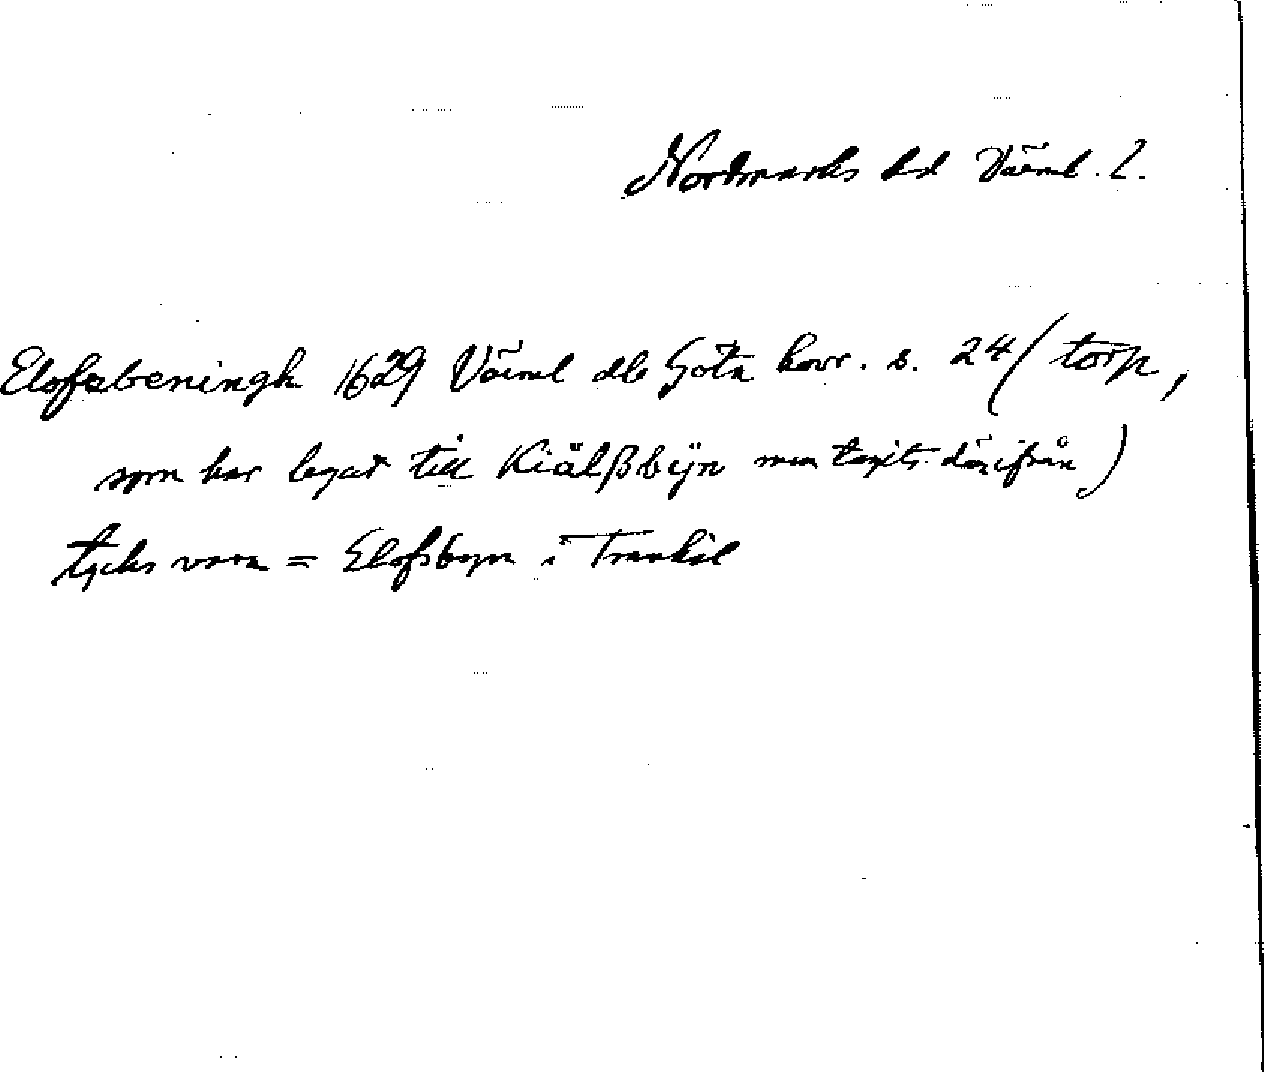 Nordmarks hd Värml. l.
Elofzbeningh 1629 Värml dlb Göta hovr. s. 24 (torp,
som har legat till Kiälßbÿn men tagits därifrån)
tycks vara = Elofsbyn i Trankil